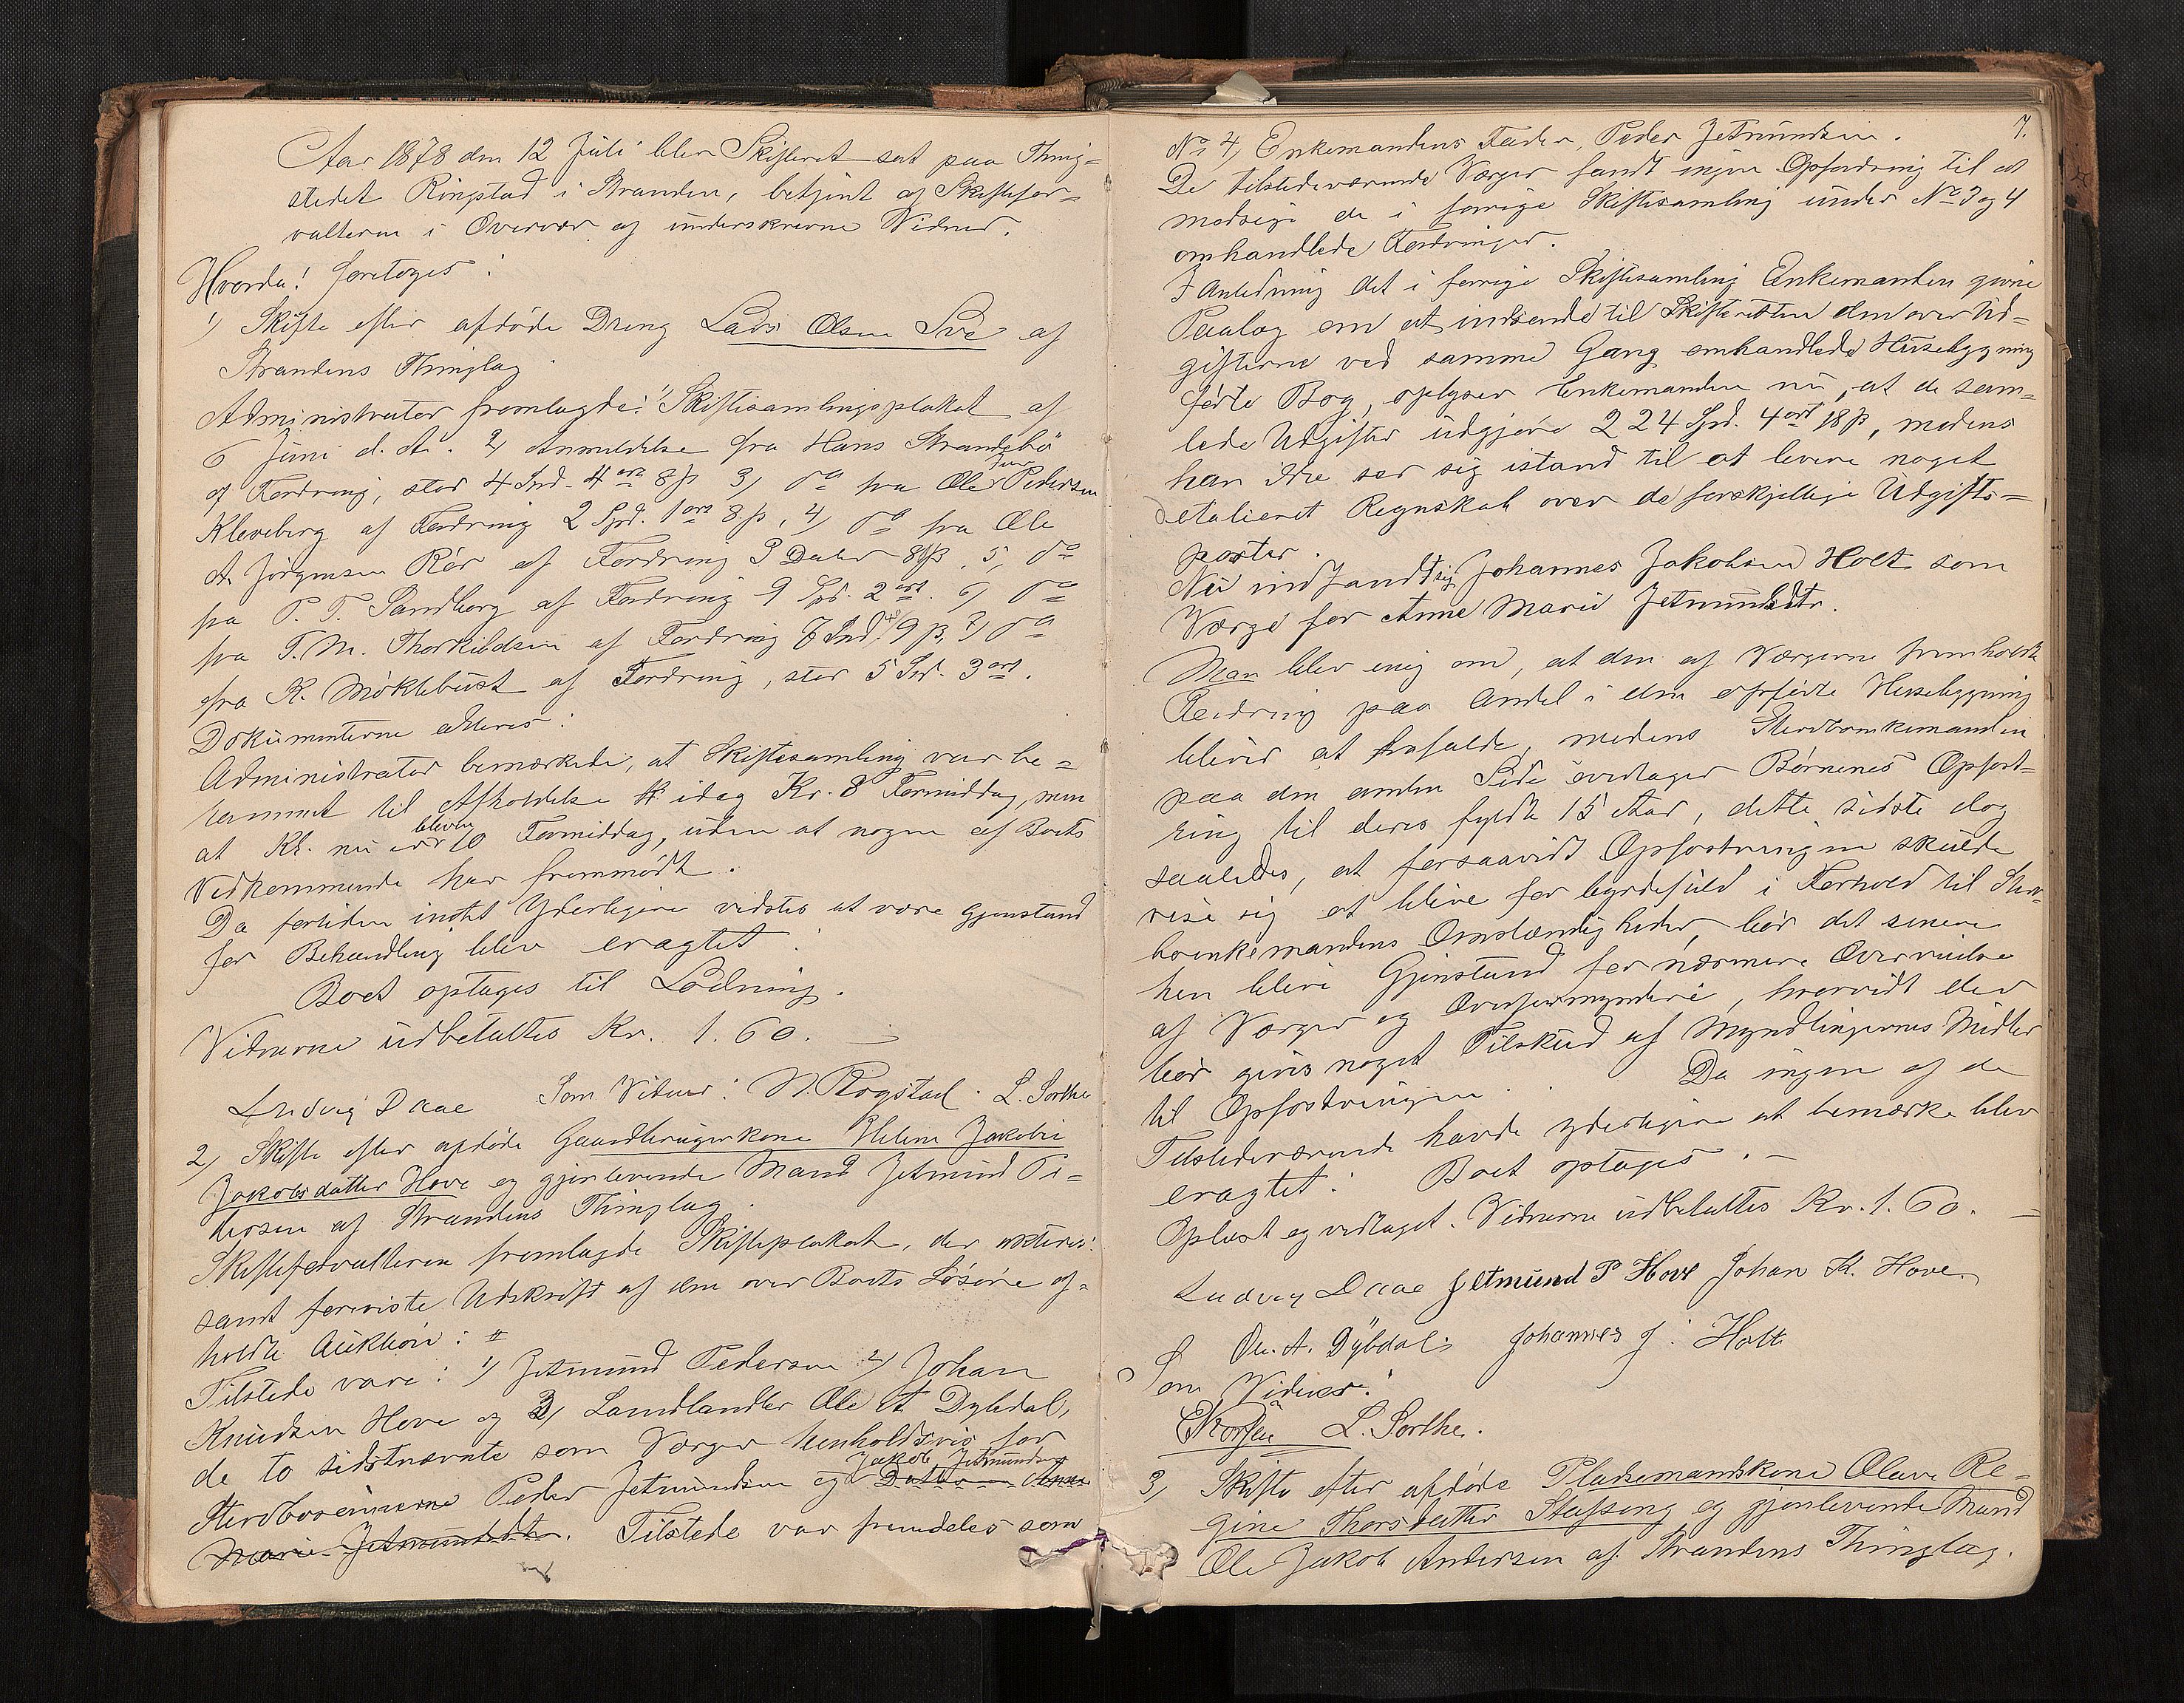 Aar 1878 den 12 Juli blev Skifteret sat paa Thing-
stedet Ringstad i Stranden, betjent af Skiftefor-
valteren i Overvær af underskrevne Vidner.
Hvorda! foretoges:
1) Skifte efter afdöde Dreng Lars Olsen Sve af
Strandens Thinglag.
Administrator fremlagde: 1) Skiftesamlingsplakat af
6 Juni d. A. 2) Anmeldelse fra Hans Strandebö
af Fordring, stor 4 Spd. 4 ort 8 ß 3) do fra Ole Pedersen
Kleveberg af Fordring 2 Spd. 1 ort 8 ß, 4) do fra Ole
A. Jörgensen Rör af Fordring 3 Daler 8 ß, 5, do
fra P. T. Sandborg af Fordring 9 Spd. 2 ort. 6) do
fra T. M. Thorkildsen af Fordring Spd. 9 ß, 7) do
fra K. Möklebust af Fordring, stor 5 Spd. 3 ort.
Dokumenterne akteres:
Administrator bemærkede, at Skiftesamling var be-
rammet til Afholdelse idag Kl. 8 Formiddag, men
at Kl. nu er bleven 10 Formiddag, uden at nogen af Boets
Vedkommende har fremmödt.
Da fortiden intet Yderligere vidstes at være Gjenstand
for Behandling blev eragtet:
Boet optages til Lodning.
Vidnerne udbetaltes Kr. 1. 60.
Ludvig Daae Som Vidner: N. Rogstad. L. Sorthe
2) Skifte efter afdöde Gaardbrugerkone Helene Jakobie
Jakobsdatter Hove og gjenlevende Mand Jetmund Pe-
dersen af Strandens Thinglag.
Skifteforvalteren fremlagde Skifteplakat, der akteres:
samt foreviste Udskrift af den over Boets Lösöre af-
holdte Auktion:
Tilstede vare: 1) Jetmund Pedersen 2) Johan
Knudsen Hove og 3) Landhandler Ole A Dybdal,
de to sidstnævnte som Værger henholdsvis for
Sterdboernerne Peder Jetmundsen og Jakob Jetmundsen Datter Anne
Marie Jetmundsdtr. Tilstede var fremdeles som
7.
No 4, Enkemandens Fader, Peder Jetmundsen.
De tilstedeværende Værger fandt ingen Opfordring til at
modsige de i forrige Skiftesamling under No 3 og 4
omhandlede Fordringer.
I Anledning det i forrige Skiftesamling Enkemanden givne
Paalæg om at indsende til Skifteretten den over Ud-
gifterne ved samme Gang omhandlede Husebygning
førte Bog, oplyser Enkemanden nu, at de sam-
lede Udgifter udgjøre 224 Spd. 4 ort 18 ß, medens
han ikke ser sig istand til at levere noget
detalieret Regnskab over de forskjellige Udgifts-
poster.
Nu indfandt sig Johannes Jakobsen Holt som
Værge for Anne Marie Jetmundsdtr.
Man blev enig om, at den af Værgerne fremholdte
Fordring paa Andel i den opførte Husebygning
bliver at frafalde, medens Sterboenkemanden
paa den anden Side overtager Børnenes Opfost-
ring til deres fyldte 15 Aar, dette sidste dog
saaledes, at forsaavidt Opfostringen skulde
vise sig at blive for byrdefuld i Forhold til Ster-
boenkemandens Omstændigheder, bør det senere
hen blive Gjenstand for nærmere Overveielse
af Værger og Overformynderi, hvorvidt der
bør gives noget Tilskud af Myndlingernes Midler
til Opfostringen. Da ingen af de
Tilstedeværende havde yderligere at bemærke blev
eragtet: Boet optages. —
Oplæst og vedtaget. Vidnerne udbetaltes Kr. 1. 60. —
Ludvig Daae Jetmund P Hove Johan K. Hove
Ole. A. Dÿbdal. Johannes J. Holt
Som Vidner:
L. Sorthe.
3) Skifte efter afdöde Pladsemandskone Olave Re-
gine Thorsdatter Stafseng og gjenlevende Mand
Ole Jakob Andersen af Strandens Thinglag.